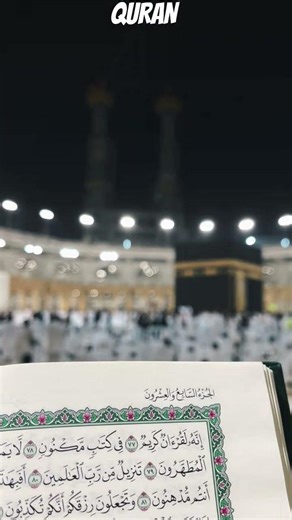 QURAN
الجزء السابع والعشرون
إِنَّهُ لَقُرْءَانٌ كَرِيمٌ ٧٧ فِي كِتَٰبٍ مَّكْنُونٍ ٧٨ لَّا يَمَ
الْمُطَهَّرُونَ ٧٩ تَنزِيلٌ مِّن رَّبِّ الْعَٰلَمِينَ ٨٠ أَفَبِهَٰذَ
أَنتُم مُّدْهِنُونَ ٨١ وَتَجْعَلُونَ رِزْقَكُمْ أَنَّكُمْ تُكَذِّبُونَ